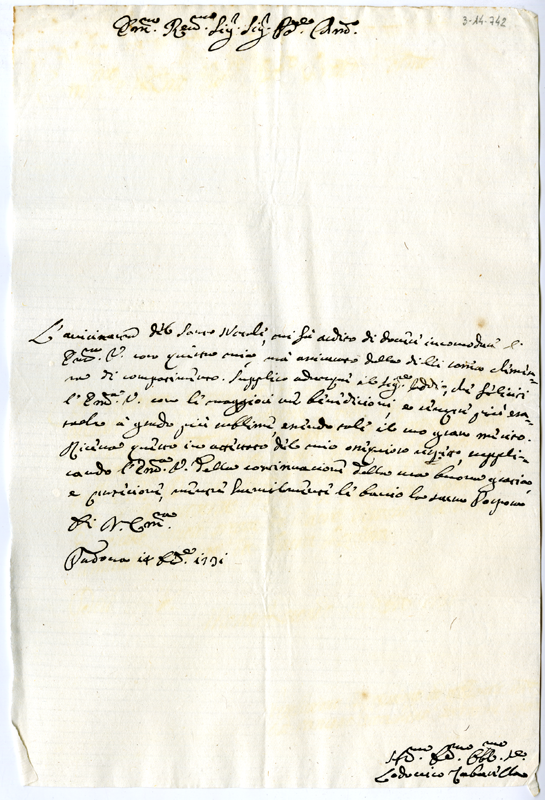 3-14-742
Em.mo Rev.mo Sig.r Sig.r P.rone Cmo.
L'avicinarsi del Santo Natale, mi fà ardito di dover incomodar l'
Em.mo V. con questa mia, mà animato della di lei
di compatimento. Supplico adunque il Sig.re Iddio, che feliciti
l'Em.za V. con le maggiori sue benedizioni, e sempre più esa-
à grado più sublime essendo tale il suo gran merito.
Riceva questo in attestato del mio ossequio suppli-
cando l'Em.za V. della continuazione della sua buona grazia
e protezione, mentre humilmente le bacio la sacra Porpora
Di V. Em.za
Padova 14 1731
H.mo D.mo Obb.mo S.re
Lodovico